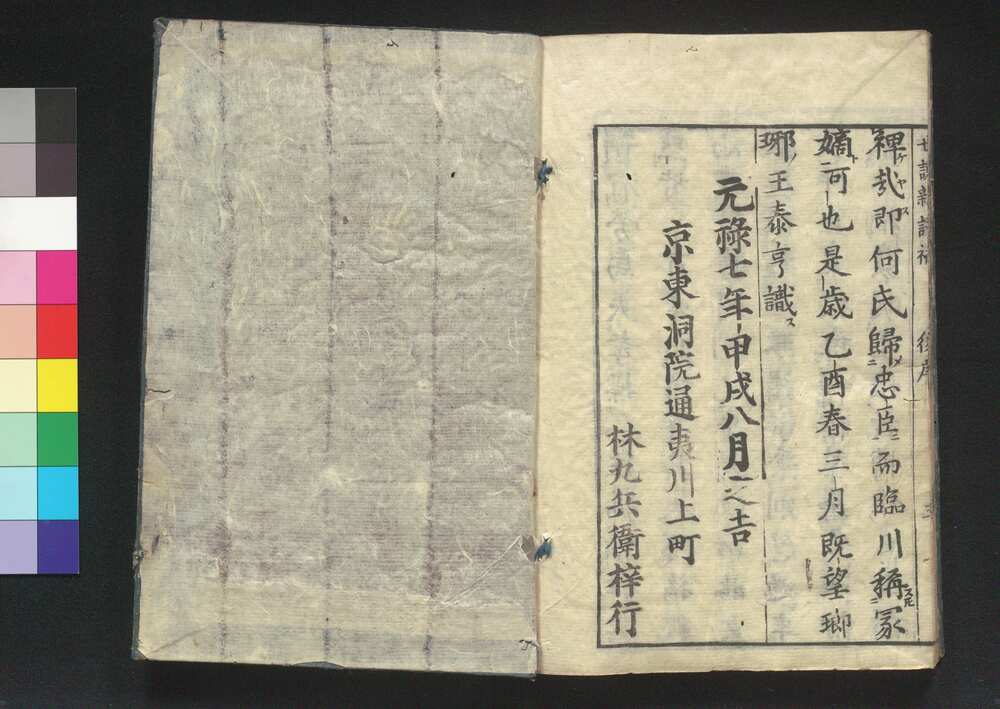 世説新語補 後序
裨哉即何氏歸忠臣而臨川稱冢
嫡可也是歳乙酉春三月既望瑯
琊王泰亨識
元祿七年甲戌八月之吉
京東洞院通夷川上町
林九兵衛梓行